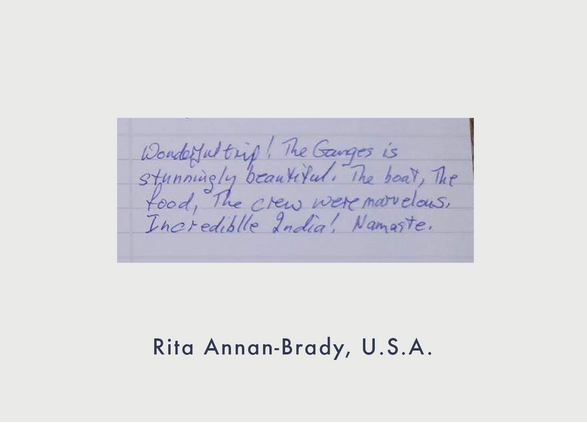 Wonderful trip! The Ganges is
stunningly beautiful. The boat, The
food, The crew were marvelous.
Incrediblle India! Namaste.
Rita Annan-Brady, U.S.A.